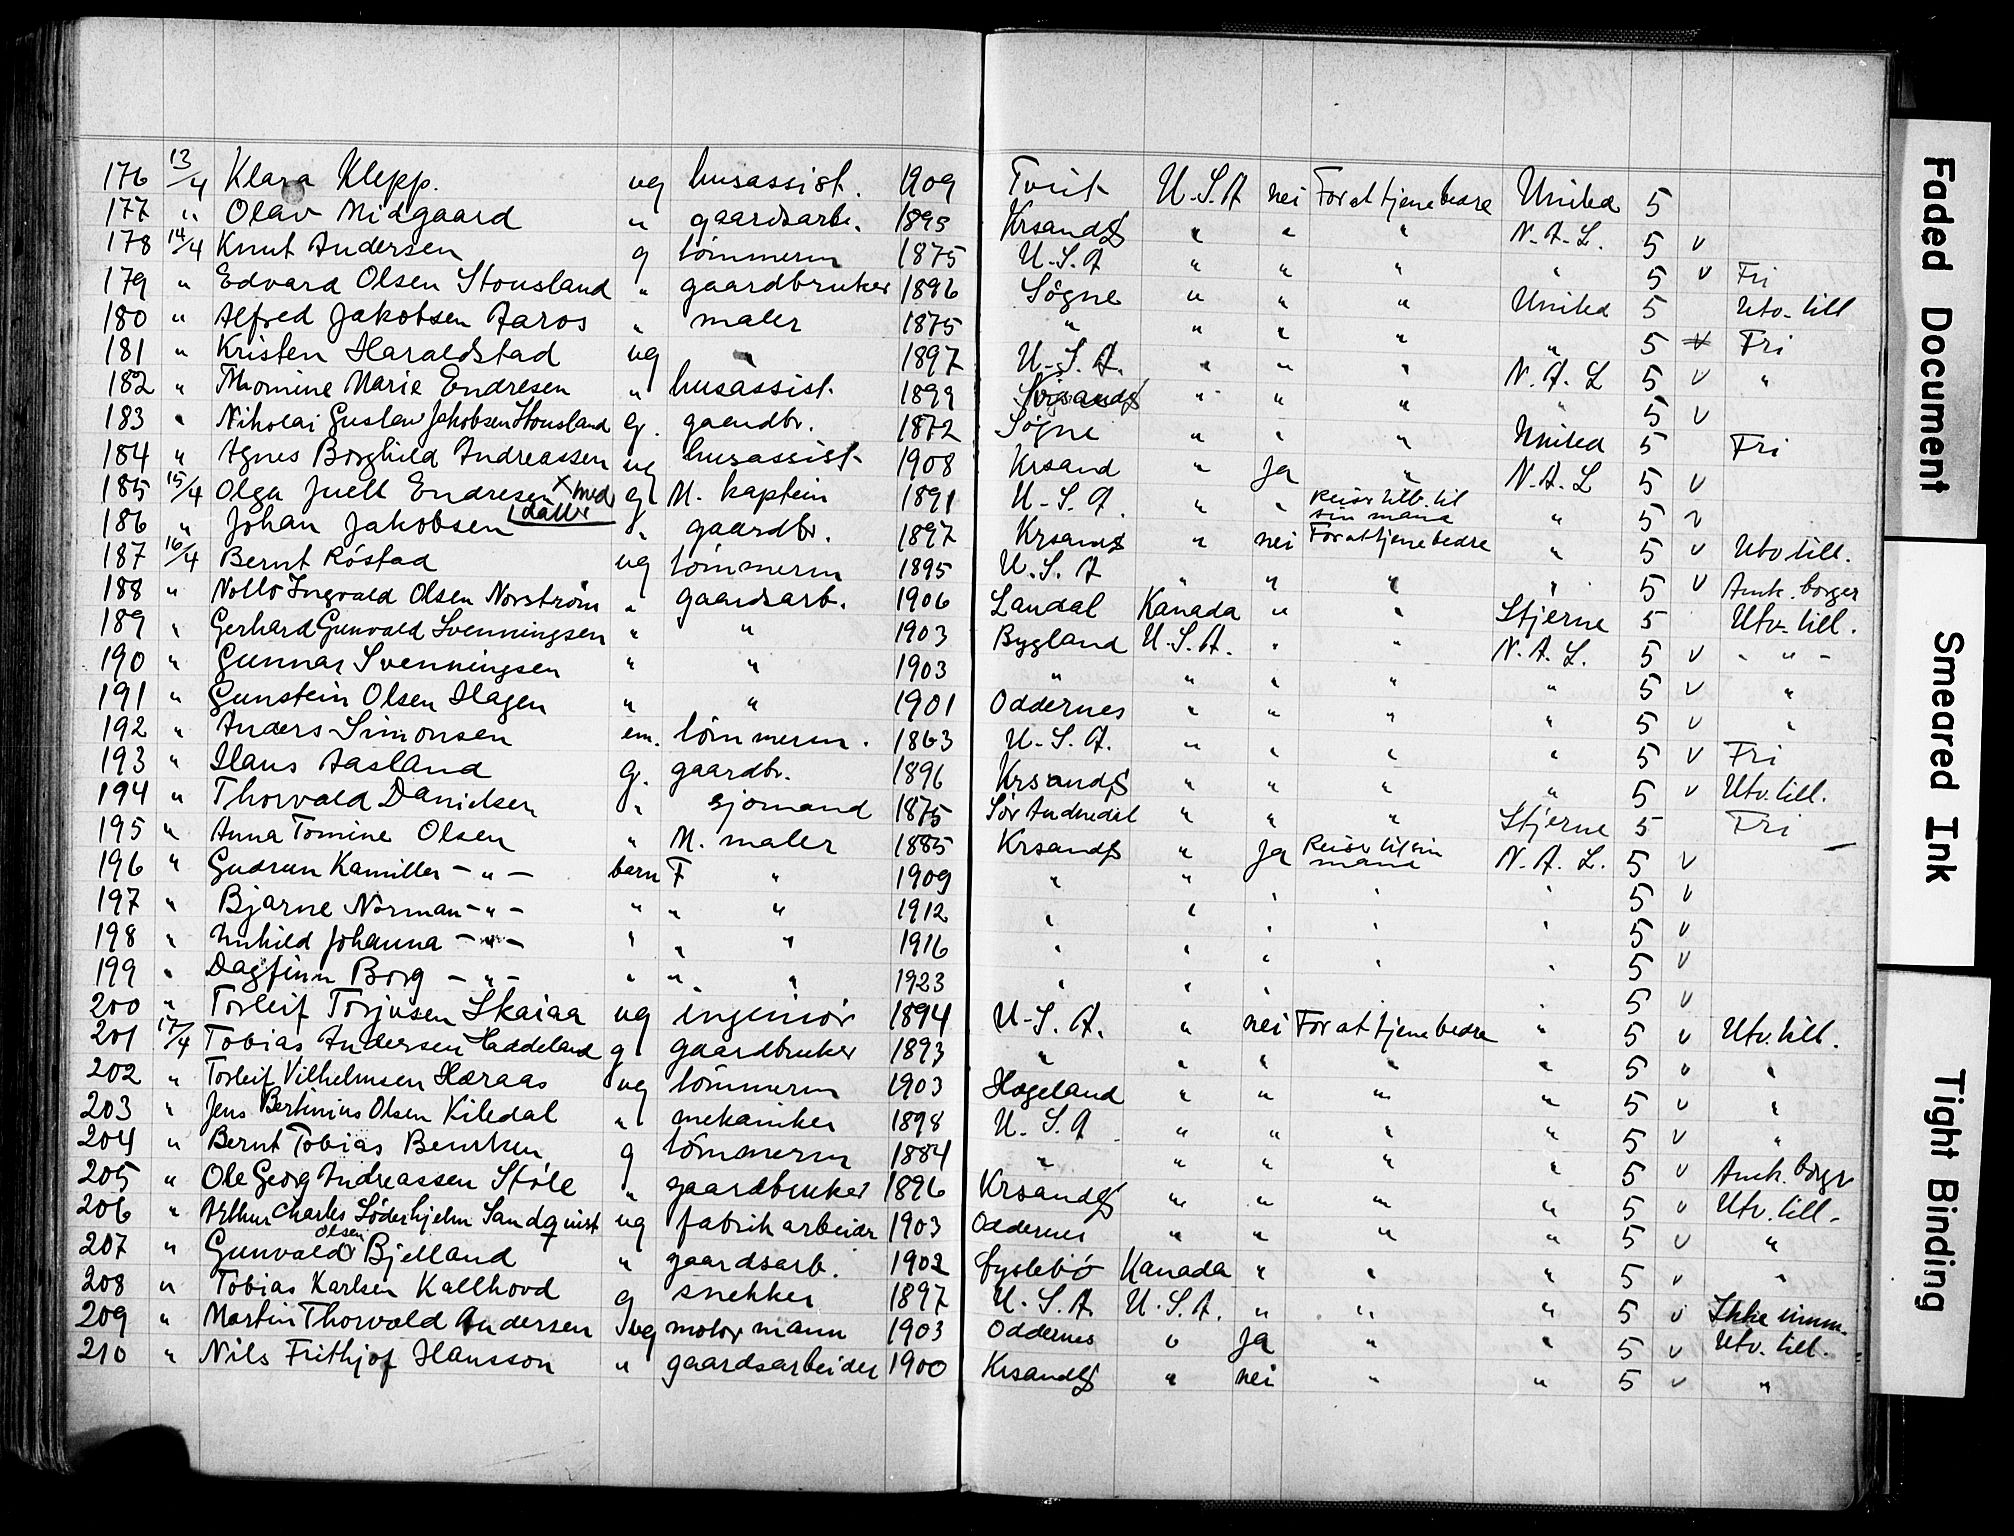 176 13/4 Klara Klepp. ug husassist. 1909 Tveit U.S.A nei For at tjene bedre United 5
177 " Olav Midgaard " gaardsarb. 1895 Krsands " " " N.A.L. 5 v
178 14/4 Knut Andersen g tömmerm 1875 U.S.A " " " " 5 v Fri
179 " Edvard Olsen Stousland " gaardbruker 1896 Søgne " " " United 5 Utv. till
180 " Alfred Jakobsen Aaros " maler 1875 " " " " " 5 v Fri
181 " Kristen Haraldstad ug " 1897 U.S.A. " " " N.A.L 5 v "
182 " Thomine Marie Endresen " husassist. 1899 Krsands " " " " 5 v
183 " Nikolai Gustav Jakobsen Stousland g. gaardbr. 1872 Søgne " " " United 5 Fri
184 " Agnes Borghild Andreassen ug husassist 1908 Krsand " ja " N.A.L 5 v
185 15/4 Olga Juell Endresen x med datter g M. kaptein 1891 U.S.A. " " Reiser tilb. til sin mand " 5 v
186 " Johan Jakobsen " gaardbr. 1897 Krsands " nei For at tjene bedre " 5 v Utv till.
187 16/4 Bernt Røstad ug tömmerm 1895 U.S.A " " " " 5 v Amk. borger
188 " Ingvald Olsen Norström " gaardsarb. 1906 Landal Kanada " " Stjerne 5 Utv. till.
189 " Gerhard Gunvald Svenningsen " " 1903 Bygland U.S.A. " " N.A.L. 5 v - " -
190 " Gunnar Svenningsen " " 1903 " " " " " 5 v "
191 " Gunstein Olsen Hagen " " 1901 Oddernes " " " " 5 v "
192 " Anders Simonsen em. tömmerm. 1863 U.S.A. " " " " 5 v Fri
193 " Hans Aasland g. gaardbr. 1896 Krsands " " " " 5 v Utv. till.
194 " Thorvald Danielsen " sjömand 1875 Sör Audnedal " " " Stjerne 5 Fri
195 " Anna Tomine Olsen " M. maler 1885 Krsands " ja Reiser til sin mand N.A.L. 5 v
196 " Gudrun Kamilla - " - barn F " 1909 " " " " " 5 v
197 " Bjarne Norman - " - " " " 1912 " " " " " 5 v
198 " Johanna - " - " " " 1916 " " " " " 5 v
199 " Dagfinn Borg - " - " " " 1923 " " " " " 5 v
200 " Torleif Torjusen Skaiaa ug ingeniör 1894 U.S.A. " nei For at tjene bedre " 5 v Utv. till.
201 17/4 Tobias Andersen Haddeland g gaardbruker 1893 " " " " " 5 v "
202 " Torleif Vilhelmsen Hæraas ug tömmerm 1903 Hægeland " " " " 5 v "
203 " Jens Bertinius Olsen Kiledal " mekaniker 1898 U.S.A. " " " " 5 v "
204 " Bernt Tobias g tömmerm 1884 " " " " " 5 v Amk. borger
205 " Ole Georg Andreassen Støle " gaardbruker 1896 Krsands " " " " 5 v Utv. till.
206 " Arthur Charles Söderhjelm Sandquist ug fabrikarbeider 1903 Oddernes " " " " 5 v "
207 " Gunvald Olsen Bjelland " gaardsarb. 1902 Öyslebö Kanada " " " 5 v "
208 " Tobias Karlsen Kallhovd g snekker 1897 U.S.A. U.S.A. " " " 5 v Ikke imm.
209 " Martin Thorvald Andersen ug motormann 1903 Oddernes " ja " " 5 v Utv. till.
210 " Nils Frithjof Hansson " gaardsarbeider 1900 Krsands " nei " " 5 v "
Faded Document
Smeared Ink
Tight Binding